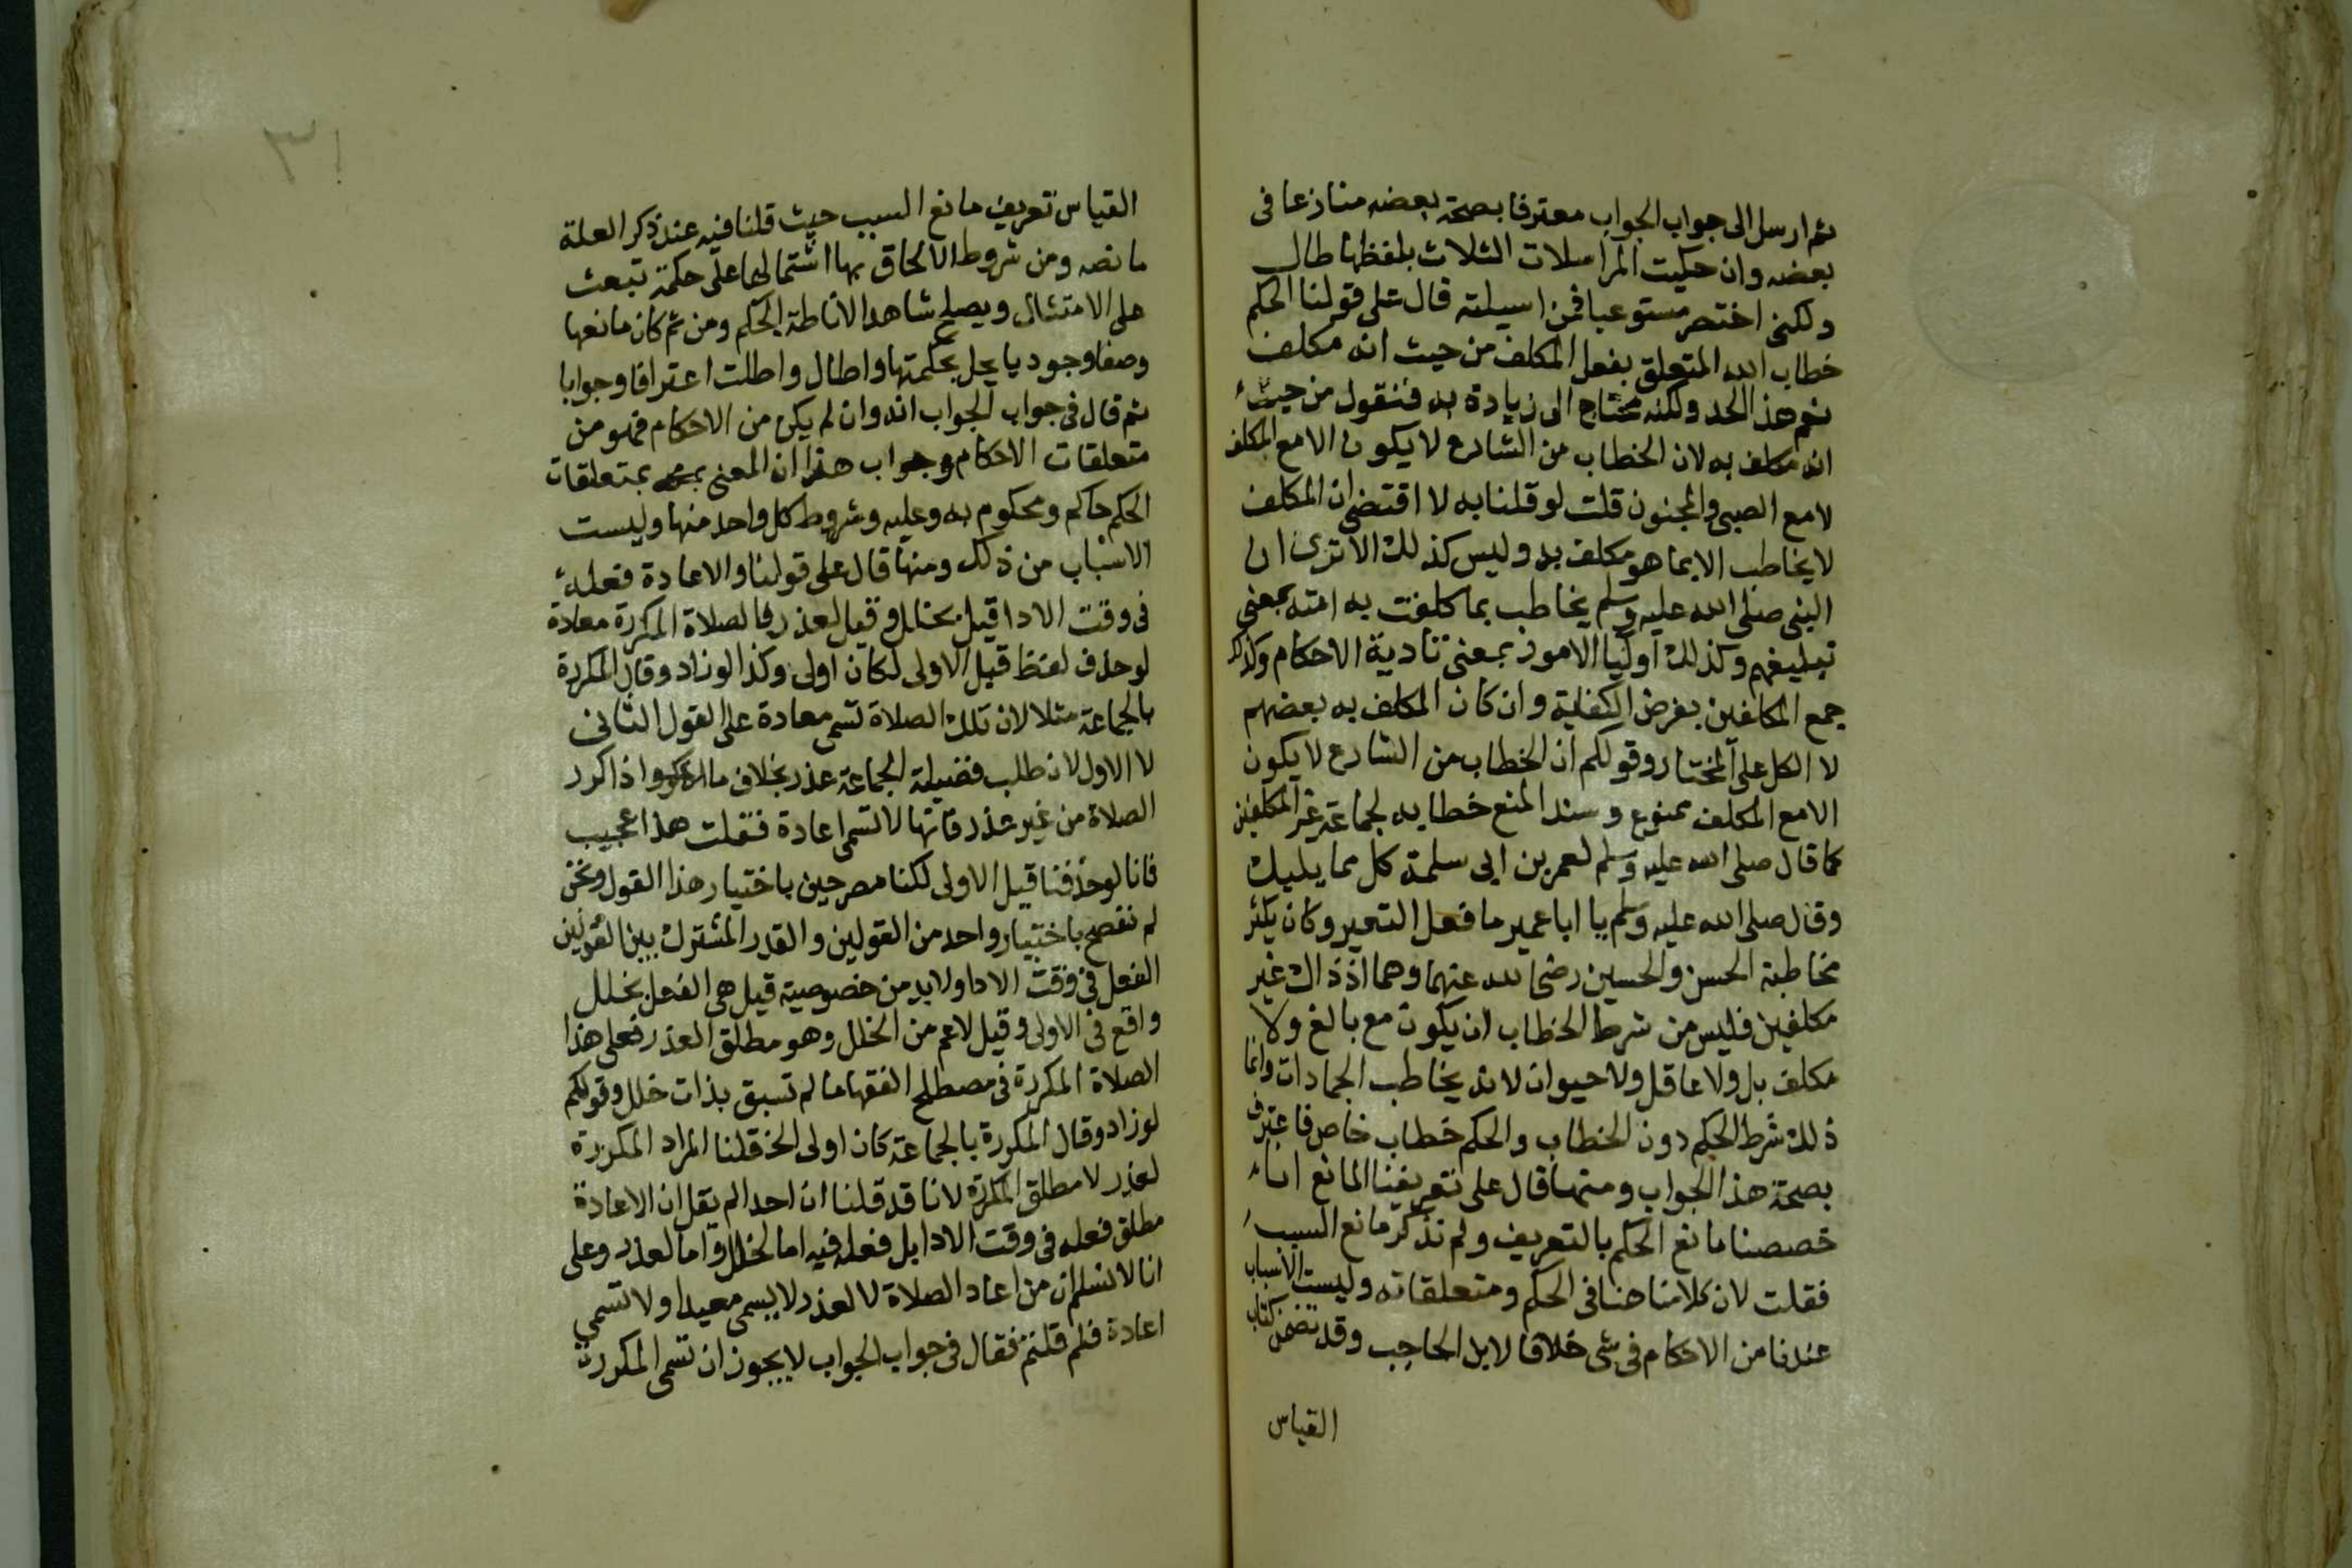 ثم ارسل الى جواب الجواب معترفا بصحة بعضه منازعا فى
بعضه وان حكيت المراسلات الثلاث بلفظها طال
ولكنى اختصر مستوعبا فمن اسيلته قال على قولنا الحكم
خطاب الله المتعلق بفعل المكلف من حيث انه مكلف
نعم هذ الحد ولكنه محتاج الى زيادة به فنقول من حيث
انه مكلف به لان الخطاب من الشارع لا يكون الا مع المكلف
لا مع الصبى والمجنون قلت لو قلنا به لا اقتضى ان المكلف
لا يخاطب الا بما هو مكلف به وليس كذلك الا ترى ان
النبى صلى الله عليه وسلم يخاطب بما كلفت به امته بمعنى
تبليغهم وكذلك اوليا الامور بمعنى تادية الاحكام وكذا
جمع المكلفين بفرض الكفاية وان كان المكلف به بعضهم
لا الكل على المختار وقولكم ان الخطاب من الشارع لا يكون
الا مع المكلف ممنوع وسند المنع خطابه لجماعة غير المكلفين
كما قال صلى الله عليه وسلم لعمر بن ابى سلمة كل مما يليك
وقال صلى الله عليه وسلم يا ابا عمير ما فعل النغير وكان يكثر
مخاطبة الحسن والحسين رضى الله عنهما وهما اذذاك غير
مكلفين فليس من شرط الخطاب ان يكون مع بالغ ولا
مكلف بل ولا عاقل ولا حيوان لانه يخاطب الجمادات وانما
ذلك شرط الحكم دون الخطاب والحكم خطاب خاص فاعترف
بصحة هذ الجواب ومنها قال على تعريفنا المانع انا
خصصنا مانع الحكم بالتعريف ولم نذكر مانع السبب
فقلت لان كلامنا هنا فى الحكم ومتعلقاته وليست الاسباب
عندنا من الاحكام فى شى خلافا لابن الحاجب وقد تضمن كتاب
القياس
٣١
القياس تعريف مانع السبب حيث قلنا فيه عند ذكر العلة
ما نصه ومن شروط الالحاق بها اشتمالها على حكمة تبعث
على الامتثال ويصلح شاهدا لاناطة الحكم ومن ثم كان مانعها
وصفا وجوديا يخل بحكمتها واطال واطلت اعترافا وجوابا
ثم قال فى جواب الجواب انه وان لم يكن من الاحكام فهو من
متعلقات الاحكام وجواب هذا ان المعنى بمتعلقات
الحكم حاكم ومحكوم به وعليه وشروط كل واحد منها وليست
الاسباب من ذلك ومنها قال على قولنا والاعادة فعله
فى وقت الادا قيل بخلل وقيل لعذر فالصلاة المكررة معادة
لو حذف لفظ قيل الاولى لكان اولى وكذا لو زاد وقال المكررة
بالجماعة مثلا لان تلك الصلاة تسمى معادة على القول الثانى
لا الاول لان طلب فضيلة الجماعة عذر بخلاف ما اذا كرر
الصلاة من غير عذر فانها لا تسمى اعادة فقلت هذا عجيب
فانا لو حذفنا قيل الاولى لكنا مصرحين باختيار هذا القول ونحن
لم نفصح باختيار واحد من القولين والقدر المشترك بين القولين
الفعل فى وقت الادا ولا بد من خصوصية قيل هى الفعل بخلل
واقع فى الاولى وقيل لاعم من الخلل وهو مطلق العذر فعلى هذا
الصلاة المكررة فى مصطلح الفقها ما لم تسبق بذات خلل وقولكم
لو زاد وقال المكررة بالجماعة كان اولى الخ قلنا المراد المكررة
لعذر لا مطلق المكررة لانا قد قلنا ان احدا لم يقل ان الاعادة
مطلق فعله فى وقت الادا بل فعله فيه اما لخلل واما لعذر وعلى
انا لا نسلم ان من اعاد الصلاة لا لعذر لا يسمى معيدا ولا تسمى
اعادة فلم قلتم فقال فى جواب الجواب لا يجوز ان تسمى المكررة